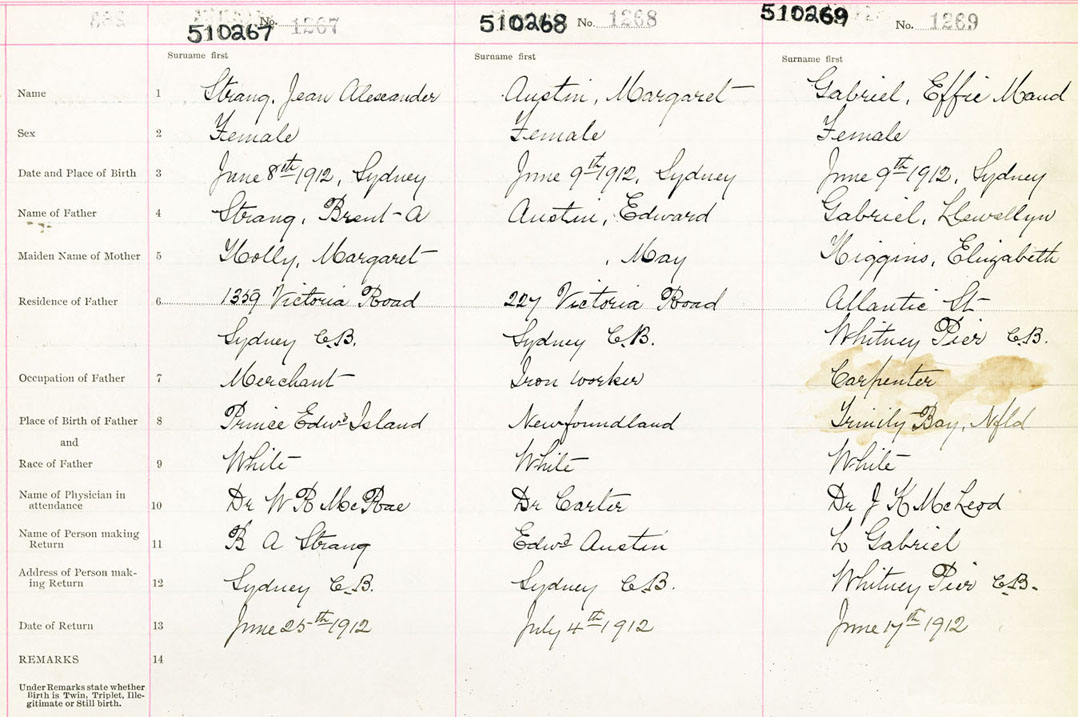 510267 No. 1267 510268 No. 1268 510269 No. 1269
Surname first Surname first Surname first
Name 1 Strang, Jean Alexander Austin, Margaret Gabriel, Effie Maud
Sex 2 Female Female Female
Date and Place of Birth 3 June 8th 1912, Sydney June 9th 1912, Sydney June 9th 1912, Sydney
Name of Father 4 Strang, Brent A Austin, Edward Gabriel, Llewellyn
Maiden Name of Mother 5 Holly, Margaret , May Higgins, Elizabeth
Residence of Father 6 1359 Victoria Road 227 Victoria Road Atlantic St
Sydney C.B. Sydney C.B. Whitney Pier C.B.
Occupation of Father 7 Merchant Iron worker Carpenter
Place of Birth of Father 8 Prince Edwd Island Newfoundland Trinity Bay, Nfld
and
Race of Father 9 White White White
Name of Physician in
attendance 10 Dr W R McRae Dr Carter Dr J K McLeod
Name of Person making
Return 11 B A Strang Edwd Austin L Gabriel
Address of Person mak-
ing Return 12 Sydney C.B. Sydney C.B. Whitney Pier C.B.
Date of Return 13 June 25th 1912 July 4th 1912 June 17th 1912
REMARKS 14
Under Remarks state whether
Birth is Twin, Triplet, Ille-
gitimate or Still birth.